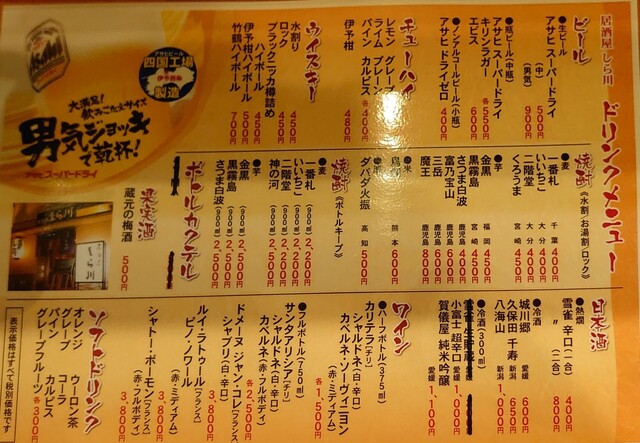 居酒屋 しら川
ドリンクメニュー
ビール
●生ビール
アサヒ スーパードライ
(中) 500円
(男気) 900円
●瓶ビール(中瓶)
アサヒ スーパードライ
キリンラガー 各550円
エビス 600円
●ノンアルコールビール(小瓶)
アサヒ ドライゼロ 400円
チューハイ
レモン グレープ
ライム プレーン
パイン カルピス 各400円
伊予柑 480円
ウイスキー
水割り 450円
ロック 450円
ブラックニッカ樽詰め
ハイボール 450円
伊予柑ハイボール 500円
竹鶴ハイボール 700円
アサヒビール
四国工場
伊予西条
製造
大満足!
飲みごたえサイズ
男気ジョッキ
で乾杯!
アサヒスーパードライ
Asahi
焼酎《水割/お湯割/ロック》
●麦
一番札 千葉 400円
いいちこ 大分 400円
二階堂 大分 400円
くろうま 宮崎 450円
●芋
金黒 福岡 450円
黒霧島 宮崎 450円
さつま白波 鹿児島
富乃宝山 鹿児島 600円
三岳 鹿児島 600円
魔王 鹿児島 800円
●米
鳥飼 熊本 600円
ダバダ火振 高知 500円
焼酎《ボトルキープ》
●麦
一番札 (900㎖) 2,200円
いいちこ (900㎖) 2,200円
二階堂 (900㎖) 2,200円
神の河 (900㎖) 2,500円
●芋
金黒 (900㎖) 2,500円
黒霧島 (900㎖) 2,500円
さつま白波 (900㎖) 2,500円
ボトルカクテル
果実酒
蔵元の梅酒 500円
しら川
日本酒
●熱燗
雪雀 辛口(一合) 400円
〃 (二合) 800円
●冷酒
城川郷 愛媛 600円
久保田 千寿 新潟 650円
八海山 新潟 1,000円
●冷酒(300㎖)
雪雀 生貯蔵
小富士 超辛口 愛媛 1,000円
賀儀屋 純米吟醸 愛媛 1,100円
ワイン
●ハーフボトル(375㎖)
カリテラ(チリ)
シャルドネ(白・辛口)
カベルネ・ソーヴィニヨン
(赤・ミディアム) 各1,500円
●フルボトル(750㎖)
サンタアリシア(チリ)
シャルドネ(白・辛口)
カベルネ(赤・フルボディ) 各2,500円
ドメーヌ・ジャン・コレ(フランス)
シャブリ(白・辛口) 3,800円
ルイ・ラトゥール(フランス)
ピノ・ノワール
(赤・ミディアム) 3,800円
シャトー・ボーモン(フランス)
(赤・フルボディ) 3,800円
ソフトドリンク
オレンジ ウーロン茶
グレープ コーラ
パイン カルピス
グレープフルーツ 各300円
表示価格はすべて税別価格です